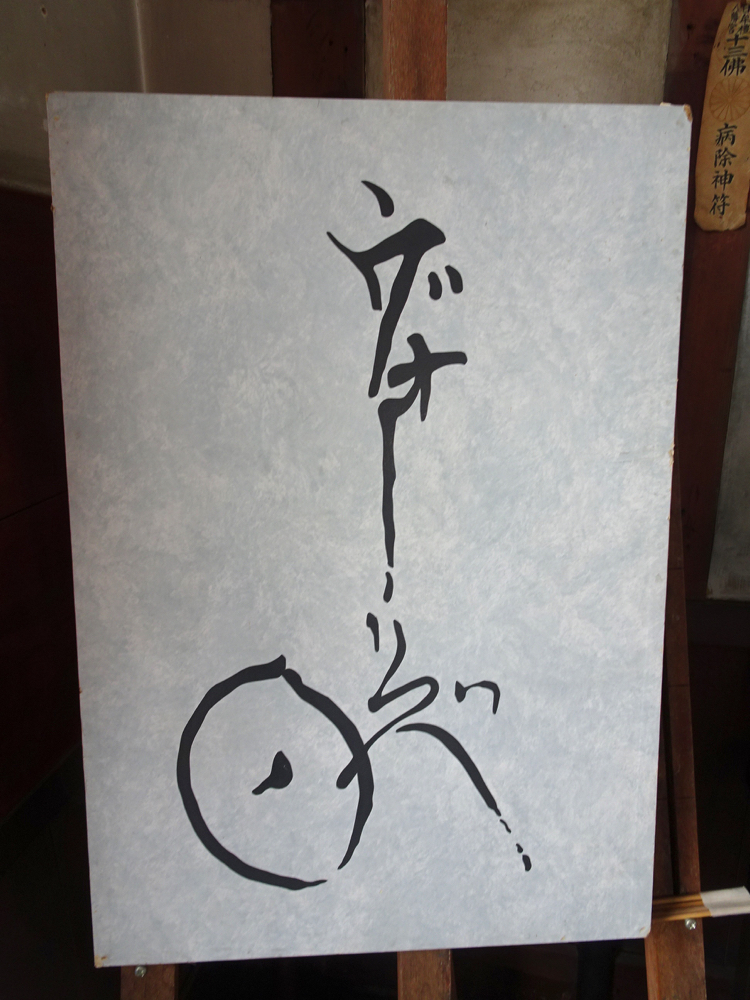 ヴォーリズ
十三佛 病除神符